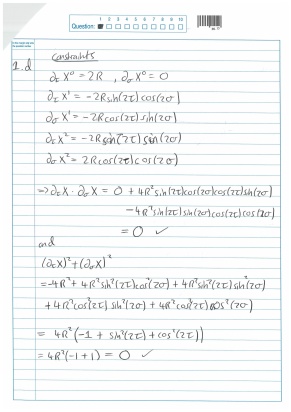 Question:
1 2 3 4 5 6 7 8 9 10
1.d
constraints
∂τX⁰ = 2R , ∂σX⁰ = 0
∂τX¹ = -2R sin(2τ) cos(2σ)
∂σX¹ = -2R cos(2τ) sin(2σ)
∂τX² = -2R sin(2τ) sin(2σ)
∂σX² = 2R cos(2τ) cos(2σ)
⇒ ∂τX · ∂σX = 0 + 4R² sin(2τ) cos(2σ) cos(2τ) sin(2σ)
- 4R² sin(2τ) sin(2σ) cos(2τ) cos(2σ)
= 0 ✓
and
(∂τX)² + (∂σX)²
= -4R² + 4R² sin²(2τ) cos²(2σ) + 4R² sin²(2τ) sin²(2σ)
+ 4R² cos²(2τ) sin²(2σ) + 4R² cos²(2τ) cos²(2σ)
= 4R² (-1 + sin²(2τ) + cos²(2τ))
= 4R² (-1 + 1) = 0 ✓